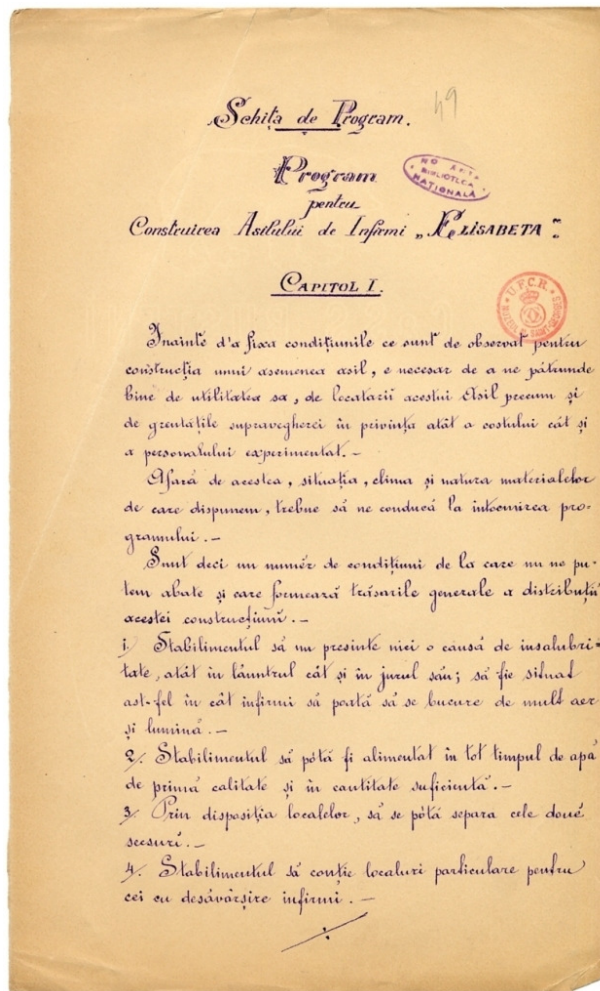 49
Schița de Program.
Program
pentru
Construirea Asilului de Infirmi „ELISABETA”.
BIBLIOTECA
NAȚIONALĂ
U.F.C.R.
CAPITOL I.
Inainte d'a fixa condițiunile ce sunt de observat pentru
construcția unui asemenea asil, e necesar de a ne pătrunde
bine de utilitatea sa, de locatarii acestui Asil precum și
de greutățile supravegherei în privința atât a costului cât și
a personalului experimentat. —
Afară de acestea, situația, clima și natura materialelor
de care dispunem, trebue să ne conducă la intocmirea pro-
gramului. —
Sunt deci un număr de condițiuni de la care nu ne pu-
tem abate și care formează trăsările generale a distribuții
acestei construcțiuni. —
1/. Stabilimentul să nu presinte nici o causă de insalubri-
tate, atât in lăuntrul cât și in jurul său; să fie situat
ast-fel in cât infirmi să poată să se bucure de mult aer
și lumină. —
2/. Stabilimentul să pótă fi alimentat in tot timpul de apă
de primă calitate și in cantitate suficientă. —
3/. Prin dispoziția localelor, să se pótă separa cele doué
secsuri. —
4/. Stabilimentul să conție localuri particulare pentru
cei cu desăvârșire infirmi. —